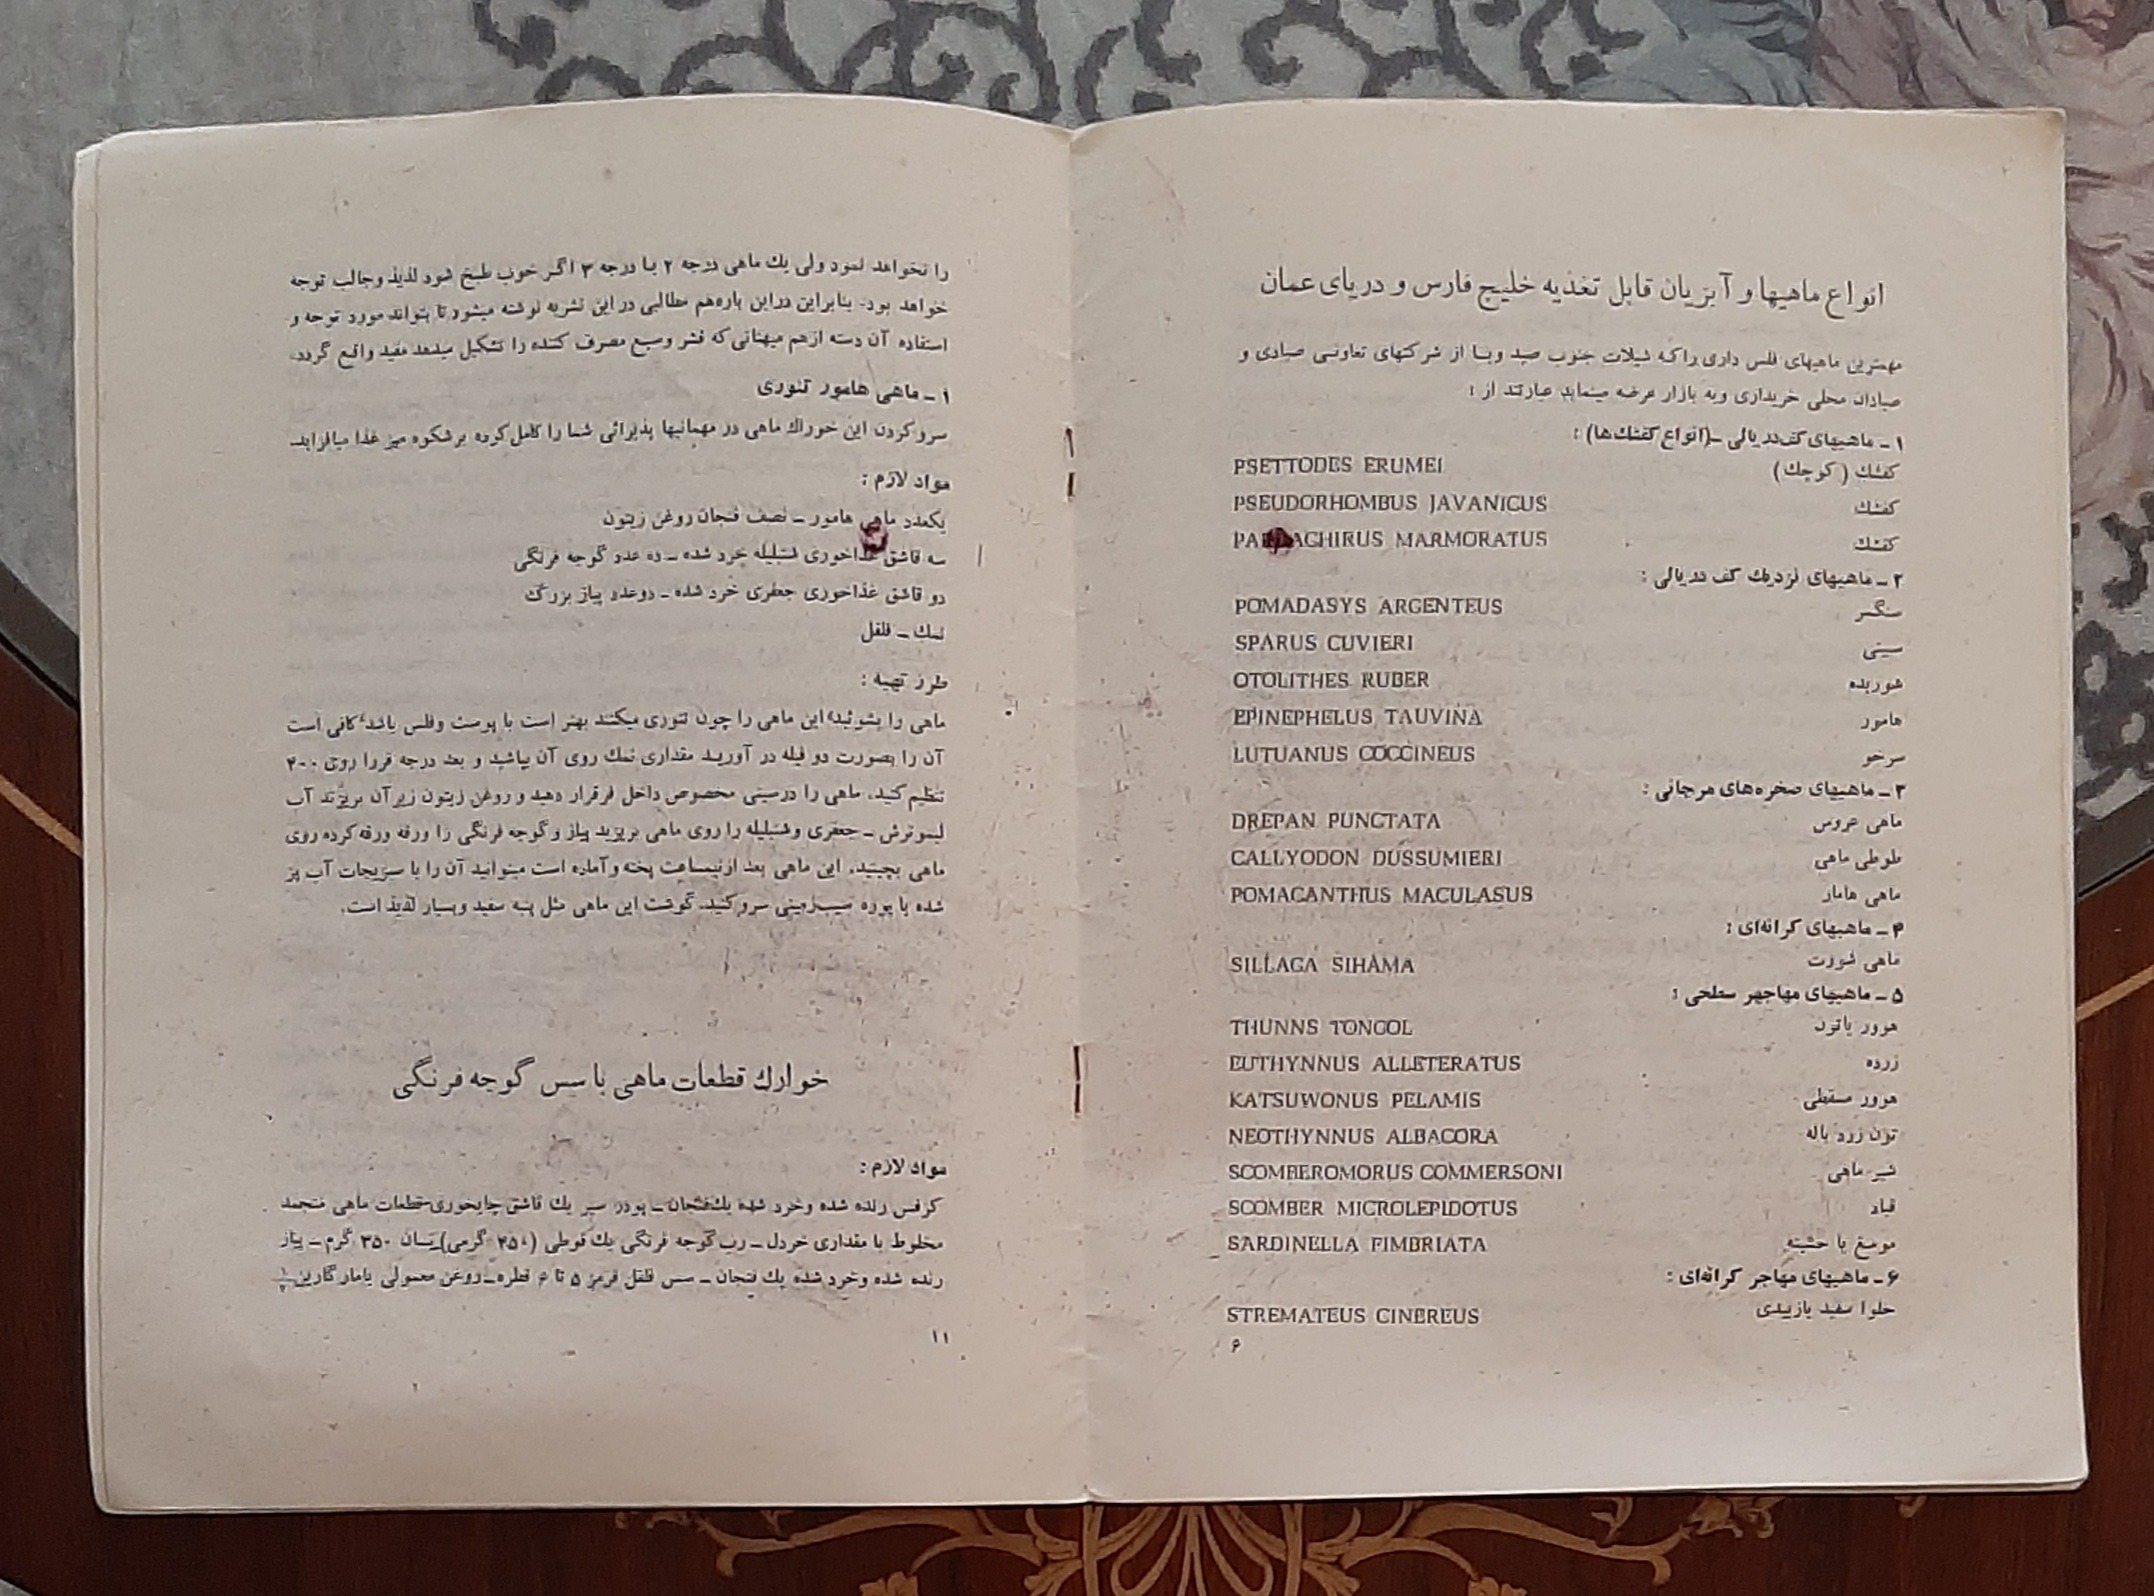 انواع ماهیها و آبزیان قابل تغذیه خلیج فارس و دریای عمان
مهمترین ماهیهای فلس داری راکه شیلات جنوب صید ویا از شرکتهای تعاونی صیادی و
صیادان محلی خریداری وبه بازار عرضه مینماید عبارتند از :
۱ ـ ماهیهای کف‌دریائی ـ(انواع کفشك‌ها) :
کفشك (کوچك) PSETTODES ERUMEI
کفشك PSEUDORHOMBUS JAVANICUS
کفشك MARMORATUS
۲ ـ ماهیهای نزدیك کف دریائی :
سنگسر POMADASYS ARGENTEUS
سیتی SPARUS CUVIERI
شوریده OTOLITHES RUBER
هامور EPINEPHELUS TAUVINA
سرخو LUTUANUS COCCINEUS
۳ ـ ماهیهای صخره‌های مرجانی :
ماهی عروس DREPAN PUNCTATA
طوطی ماهی CALLYODON DUSSUMIERI
ماهی هامار POMACANTHUS MACULASUS
۴ ـ ماهیهای کرانه‌ای :
ماهی شورت SILLAGA SIHAMA
۵ ـ ماهیهای مهاجهر سطحی :
هوور یاتون THUNNS TONGOL
زرده EUTHYNNUS ALLETERATUS
هوور مسقطی KATSUWONUS PELAMIS
تون زرد باله NEOTHYNNUS ALBACORA
شیر ماهی SCOMBEROMORUS COMMERSONI
قباد SCOMBER MICROLEPIDOTUS
مومغ یا حشینه SARDINELLA FIMBRIATA
۶ ـ ماهیهای مهاجر کرانه‌ای :
حلوا سفید یازبیدی STREMATEUS CINEREUS
۶
را نخواهد نمود ولی یك ماهی درجه ۲ یا درجه ۳ اگر خوب طبخ شود لذیذ وجالب توجه
خواهد بود. بنابراین دراین باره‌هم مطالبی در این نشریه نوشته میشود تا بتواند مورد توجه و
استفاده آن دسته ازهم میهنانی که قشر وسیع مصرف کننده را تشکیل میدهد مفید واقع گردد.
۱ ـ ماهی هامور تنوری
سرو کردن این خوراك ماهی در مهمانیها پذیرائی شما را کامل کرده برشکوه میز غذا میافزاید.
مواد لازم :
یکعدد ماهی هامور ـ نصف فنجان روغن زیتون
سه قاشق غذاخوری شنبلیله خرد شده ـ ده عدو گوجه فرنگی
دو قاشق غذاخوری جعفری خرد شده ـ دوعدد پیاز بزرگ
نمك ـ فلفل
طرز تهیه :
ماهی را بشوئید، این ماهی را چون تنوری میکنند بهتر است با پوست وفلس باشد، کافی است
آن را بصورت دو فیله در آورید مقداری نمك روی آن بپاشید و بعد درجه فررا روی ۲۰۰
تنظیم کنید. ماهی را درسینی مخصوص داخل فرقرار دهید و روغن زیتون زیرآن بریزند آب
لیموترش ـ جعفری وشنبلیله را روی ماهی بریزید پیاز و گوجه فرنگی را ورقه ورقه کرده روی
ماهی بچینید. این ماهی بعد ازنیمساعت پخته و آماده است میتوانید آن را با سبزیجات آب پز
شده یا پوره سیب‌زمینی سرو کنید. گوشت این ماهی مثل پنبه سفید وبسیار لذیذ است.
خوارك قطعات ماهی با سس گوجه فرنگی
مواد لازم :
کرفس رنده شده وخرد شده یك‌فنجان ـ پودر سیر یك قاشق چایخوری ـ قطعات ماهی منجمد
مخلوط با مقداری خردل ـ رب گوجه فرنگی یك قوطی (۲۵۰ گرمی) ۳۵۰ گرم ـ پیاز
رنده شده وخرد شده یك فنجان ـ سس فلفل قرمز ۵ تا ۶ قطره ـ روغن معمولی یامارگارین
۱۱